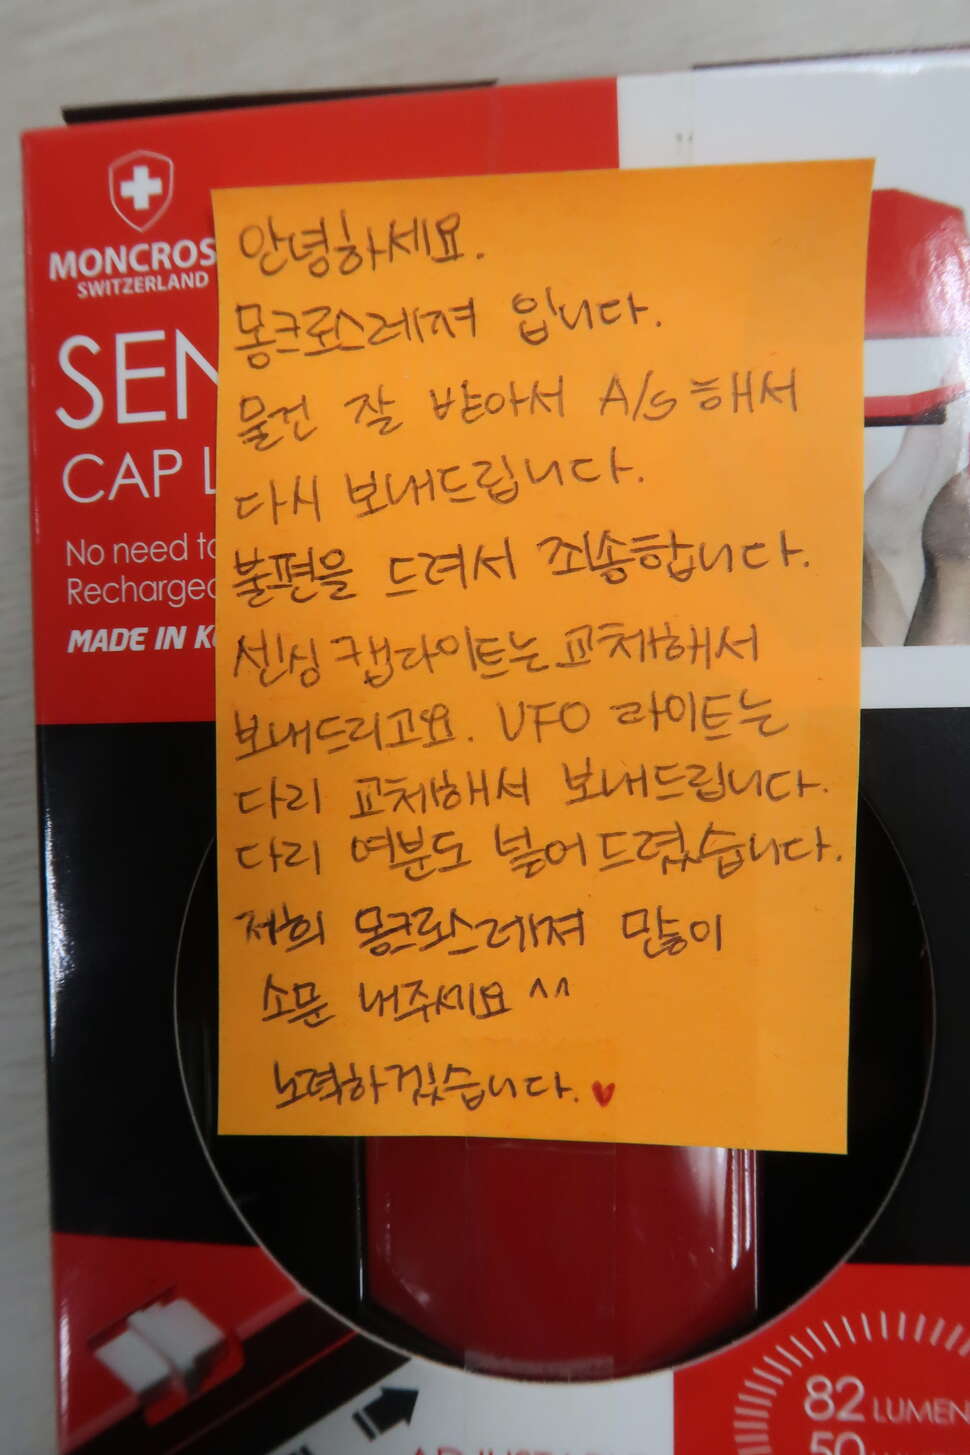 MONCROS
SWITZERLAND
SEN
CAP L
No need to
Recharged
MADE IN K
안녕하세요.
몽크로스레져 입니다.
물건 잘 받아서 A/S해서
다시 보내드립니다.
불편을 드려서 죄송합니다.
센싱 캡라이트는 교체해서
보내드리고요. UFO 라이트는
다리 교체해서 보내드립니다.
다리 여분도 넣어드렸습니다.
저희 몽크로스레져 많이
소문 내주세요 ^^
노력하겠습니다. ♥
82 LUMEN
50